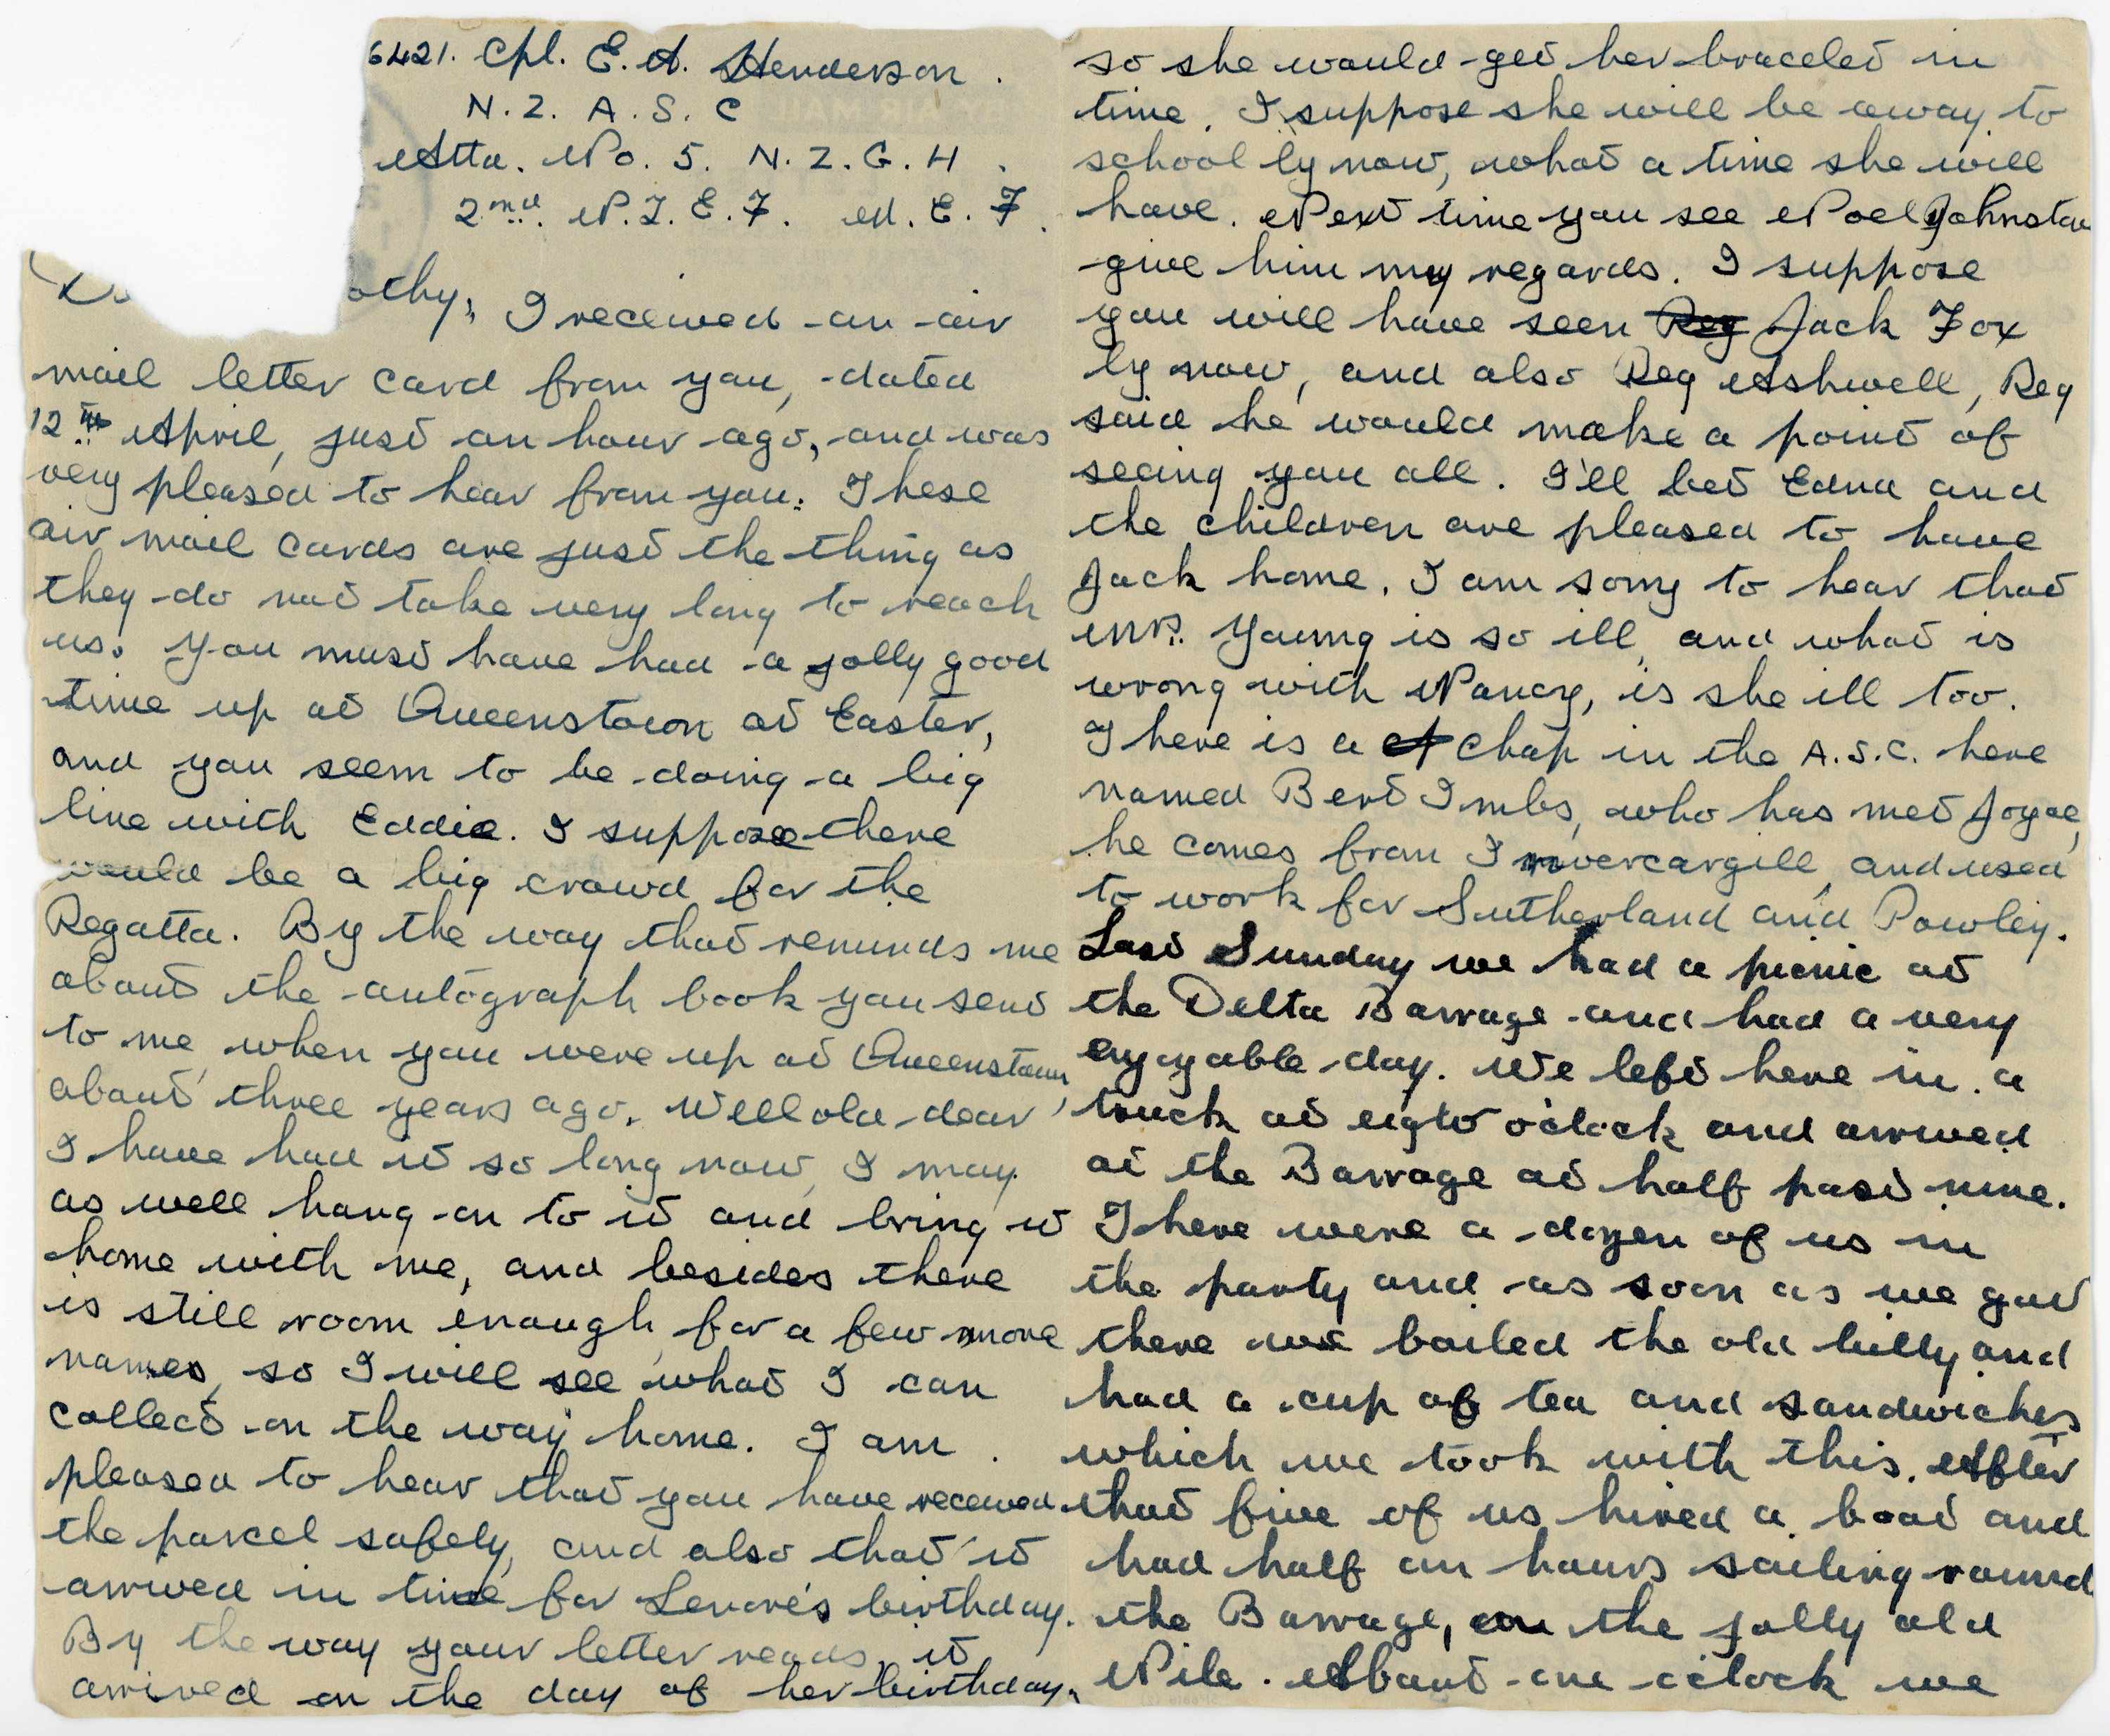 6421. Cpl. E. A. Henderson.
N. Z. A. S. C
Atta. No. 5. N. Z. G. H.
2nd. N. Z. E. F. M. E. F.
othy, I received an air
mail letter card from you, dated
12th April, just an hour ago, and was
very pleased to hear from you. These
air mail cards are just the thing as
they do not take very long to reach
us. You must have had a jolly good
time up at Queenstown at Easter,
and you seem to be doing a big
line with Eddie. I suppose there
would be a big crowd for the
Regatta. By the way that reminds me
about the autograph book you sent
to me, when you were up at Queenstown,
about three years ago. Well old dear,
I have had it so long now, I may
as well hang on to it and bring it
home with me, and besides there
is still room enough for a few more
names, so I will see what I can
collect on the way home. I am
pleased to hear that you have received
the parcel safely, and also that it
arrived in time for Lenore's birthday.
By the way your letter reads, it
arrived on the day of her birthday,
so she would get her bracelet in
time. I suppose she will be away to
school by now, what a time she will
have. Next time you see Noel Johnston
give him my regards. I suppose
you will have seen Reg Jack Fox
by now, and also Reg Ashwell, Reg
said he would make a point of
seeing you all. I'll bet Edna and
the children are pleased to have
Jack home. I am sorry to hear that
Mrs. Young is so ill, and what is
wrong with Nancy, is she ill too.
There is a chap in the A.S.C. here
named Bert Imbs, who has met Joyce,
he comes from Invercargill, and used
to work for Sutherland and Powley.
Last Sunday we had a picnic at
the Delta Barrage and had a very
enjoyable day. We left here in a
truck at eight o'clock and arrived
at the Barrage at half past nine.
There were a dozen of us in
the party and as soon as we got
there we boiled the old billy and
had a cup of tea and sandwiches
which we took with this. After
that five of us hired a boat and
had half an hours sailing round
the Barrage, on the jolly old
Nile. About one o'clock we